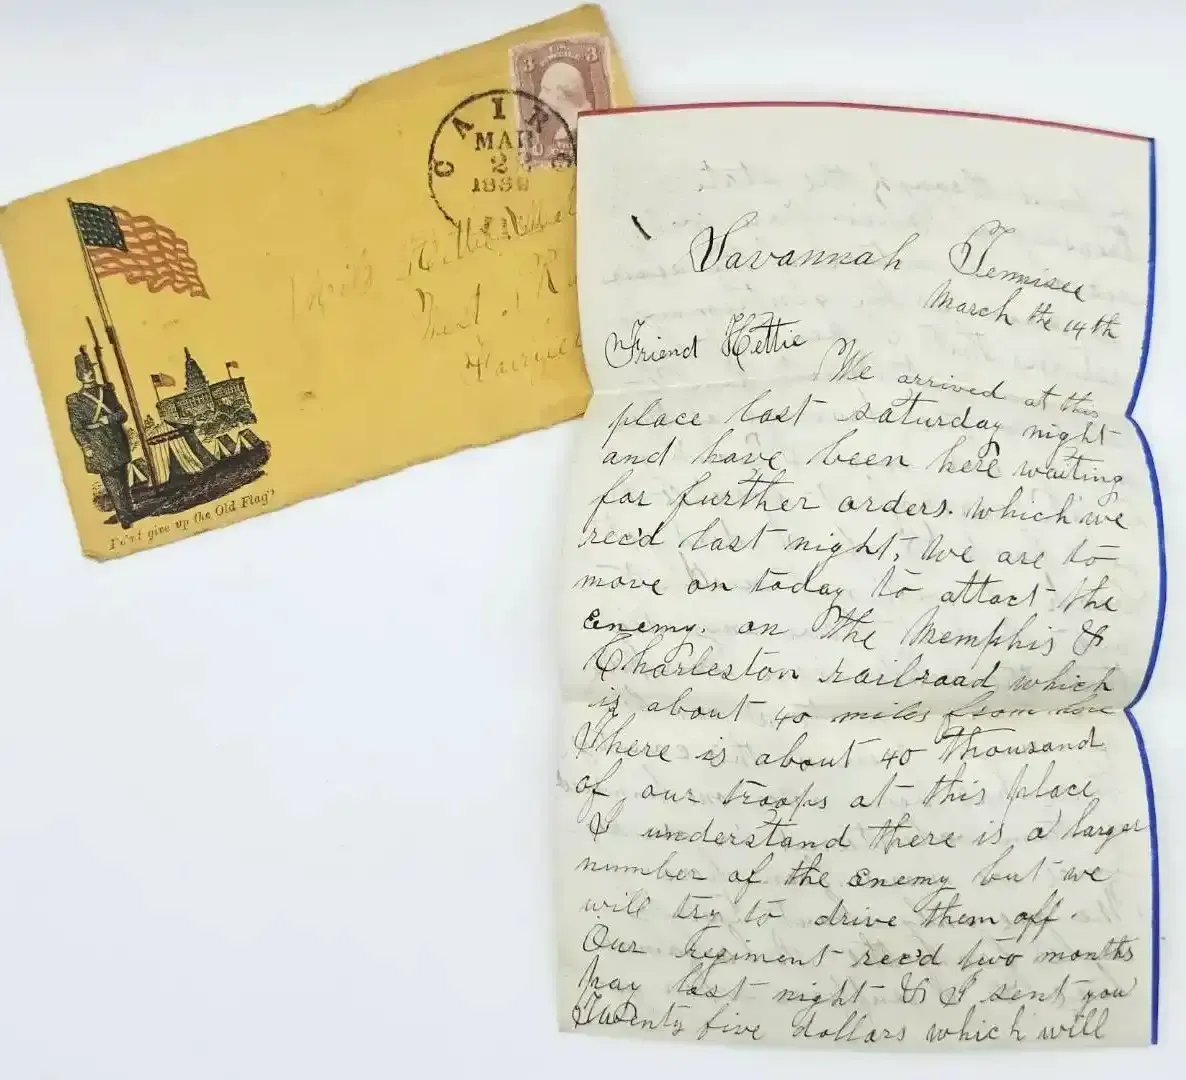 3 3
CAIRO
MAR
2
Don't give up the Old Flag"
Savannah Tennisee
March the 14th
Friend Hettie
We arrived at this
place last saturday night
and have been here waiting
for further orders. which we
rec'd last night, We are to
move on today to attact the
enemy. on the Memphis &
Charleston railroad which
is about 40 miles from here
There is about 40 thousand
of our troops at this place
I understand there is a larger
number of the enemy but we
will try to drive them off.
Our regiment rec'd two months
pay last night & I sent you
Twenty five dollars which will